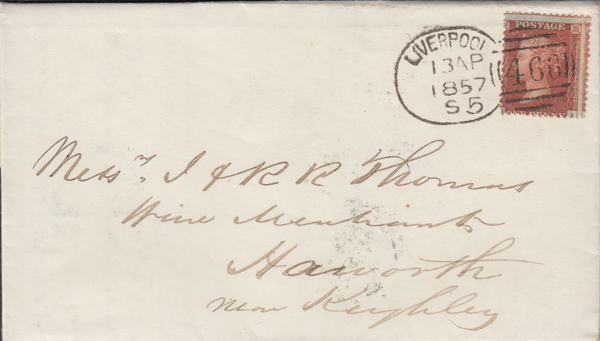 LIVERPOOL
13AP
1857
S5
466
POSTAGE
Messrs. J & R R Thomas
Wine Merchants
Haworth
near Keighley